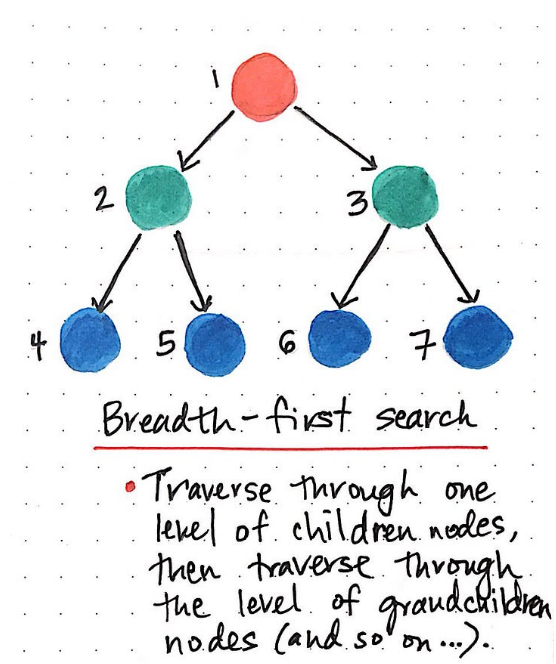 1
2
3
4
5
6
7
Breadth-first search
• Traverse through one
level of children nodes,
then traverse through
the level of grandchildren
nodes (and so on...).